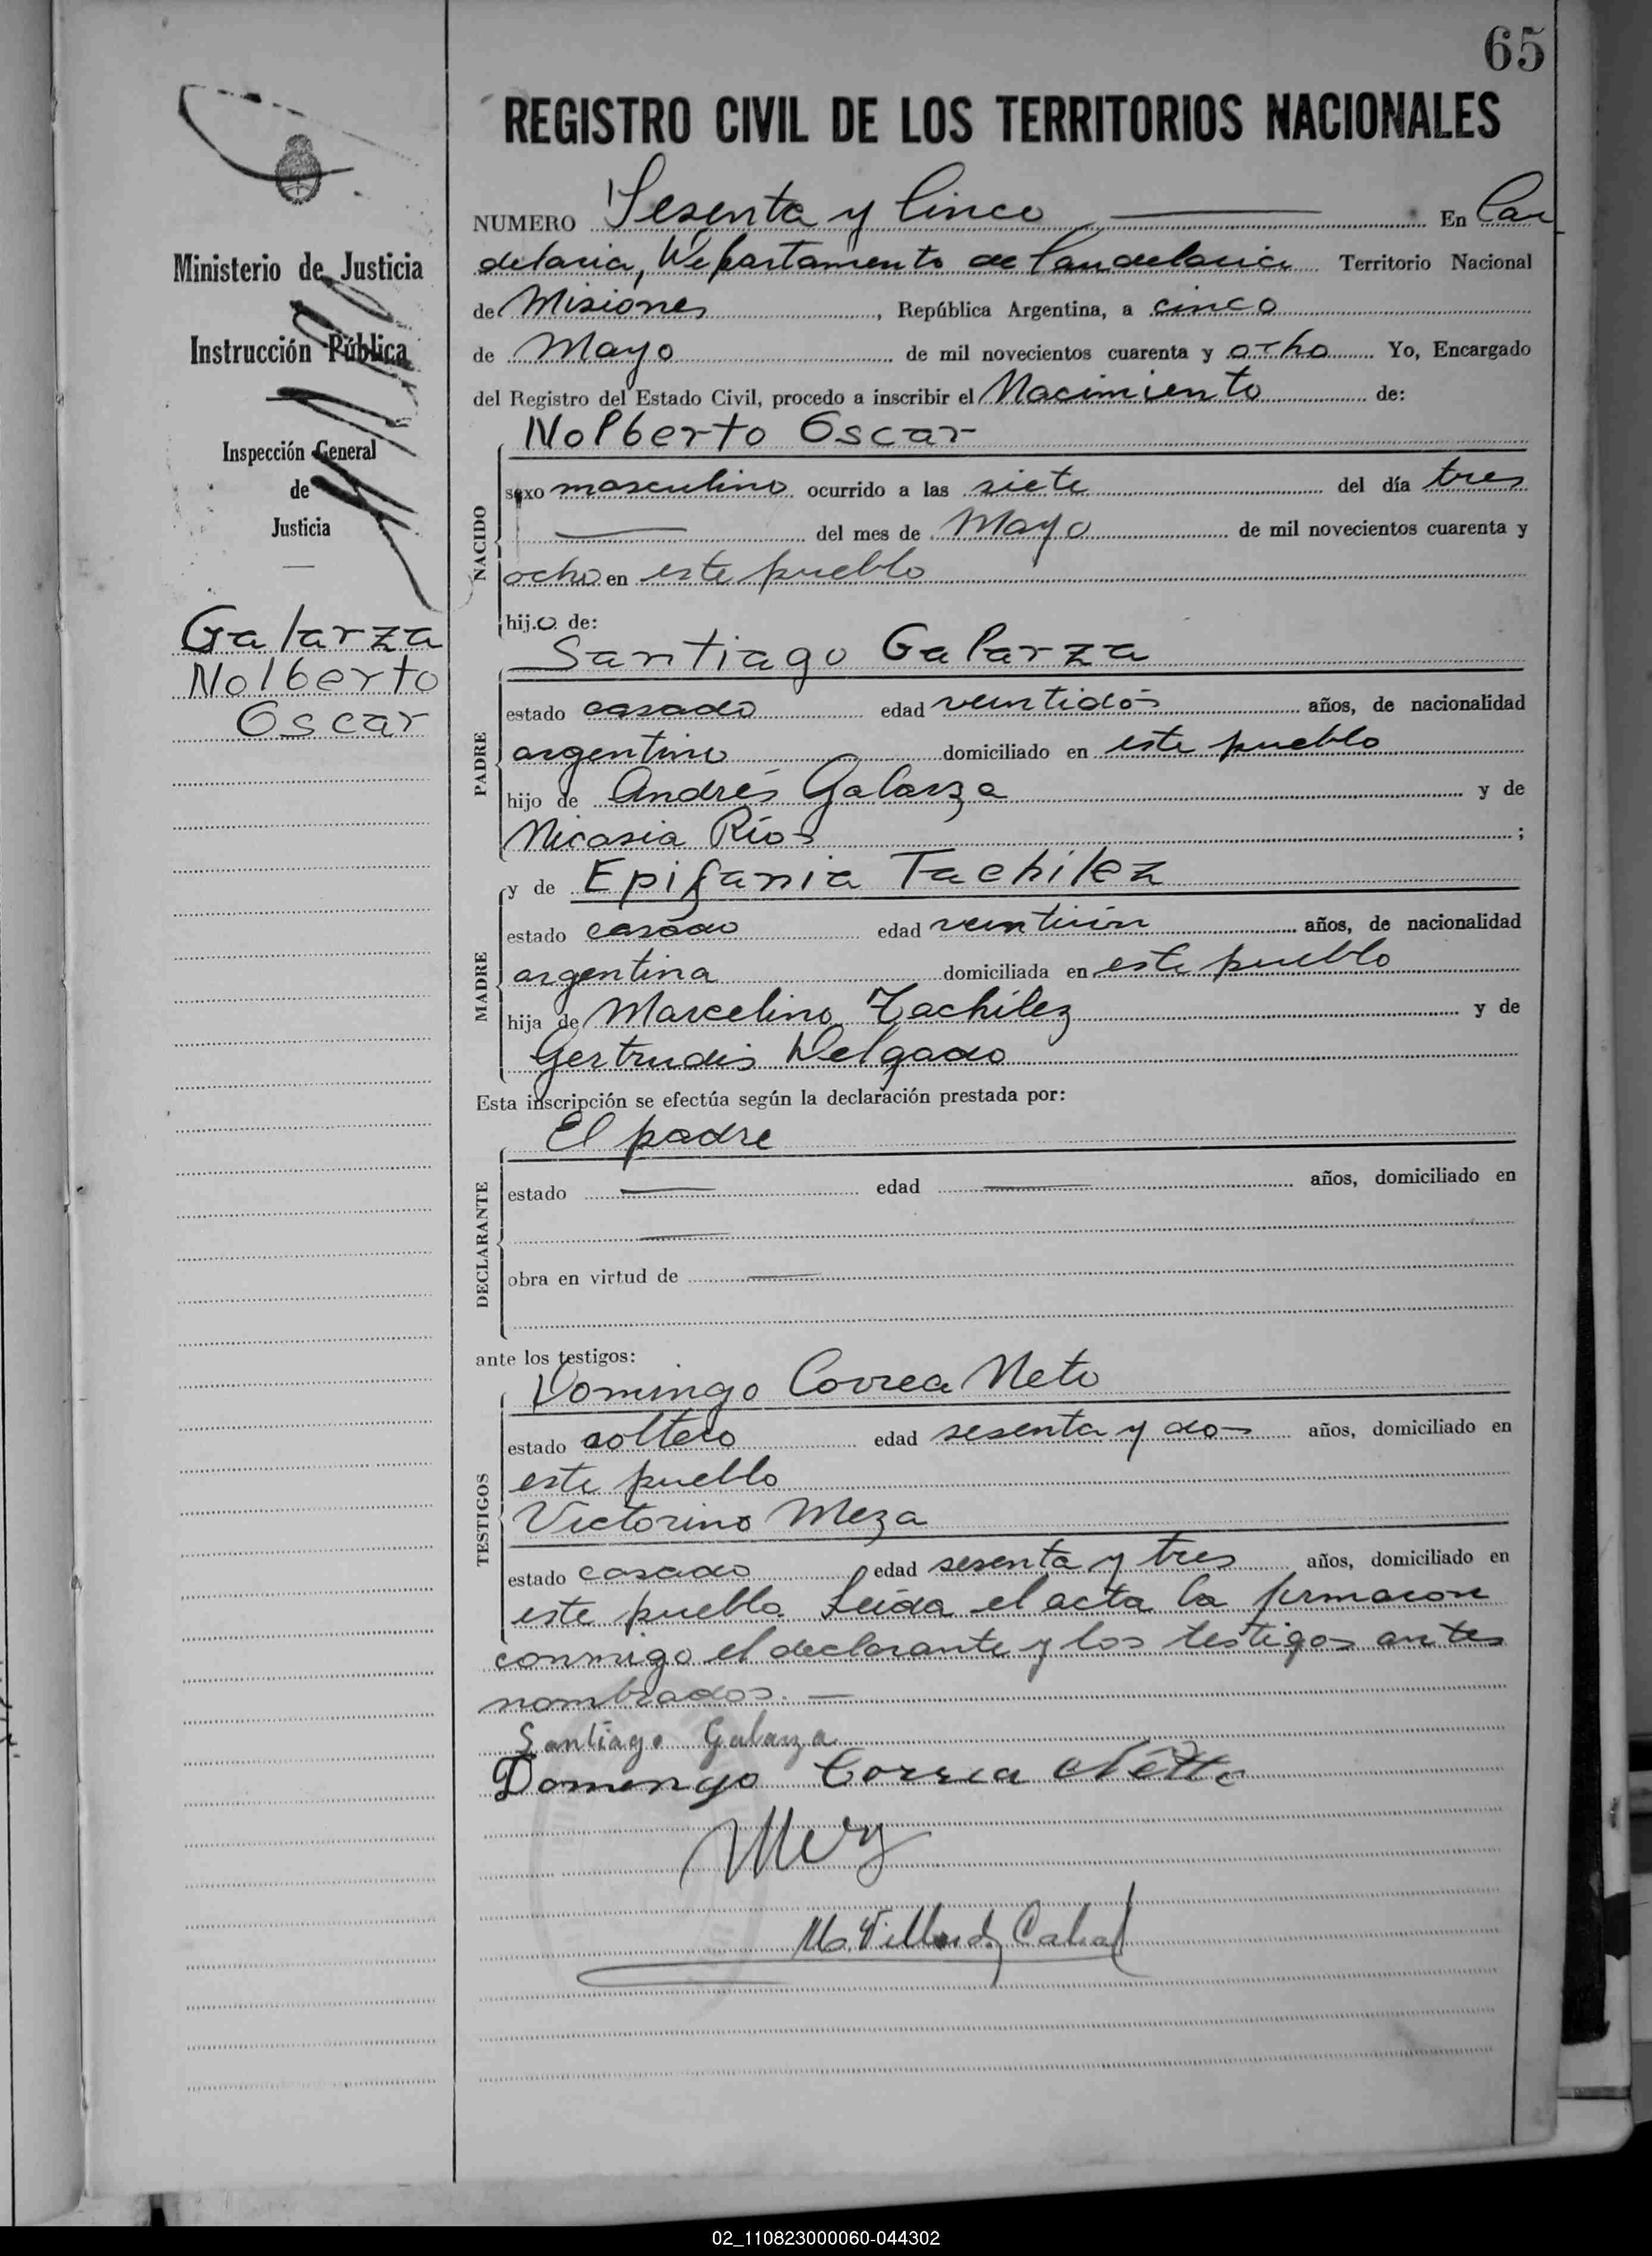 65
REGISTRO CIVIL DE LOS TERRITORIOS NACIONALES
Ministerio de Justicia
Instrucción Pública
Inspección General
de
Justicia
Galarza
Nolberto
Oscar
NUMERO Sesenta y Cinco En Can
delaria, Departamento de Candelaria Territorio Nacional
de Misiones, República Argentina, a cinco
de Mayo de mil novecientos cuarenta y ocho Yo, Encargado
del Registro del Estado Civil, procedo a inscribir el Nacimiento de:
NACIDO
Nolberto Oscar
sexo masculino ocurrido a las siete del día tres
del mes de Mayo de mil novecientos cuarenta y
ocho en este pueblo
hijo de:
PADRE
Santiago Galarza
estado casado edad veintidós años, de nacionalidad
argentino domiciliado en este pueblo
hijo de Andrés Galarza y de
Nicasia Ríos;
MADRE
y de Epifania Tachilez
estado casado edad veintiún años, de nacionalidad
argentina domiciliada en este pueblo
hija de Marcelino Tachilez y de
Gertrudis Delgado
Esta inscripción se efectúa según la declaración prestada por:
DECLARANTE
El padre
estado edad años, domiciliado en
obra en virtud de
ante los testigos:
TESTIGOS
Domingo Correa Neto
estado soltero edad sesenta y dos años, domiciliado en
este pueblo
Victorino Meza
estado casado edad sesenta y tres años, domiciliado en
este pueblo. Leída el acta la firmaron
conmigo el declarante y los testigos antes
nombrados. —
Santiago Galarza
Domengo Correa Netto
02_110823000060-044302